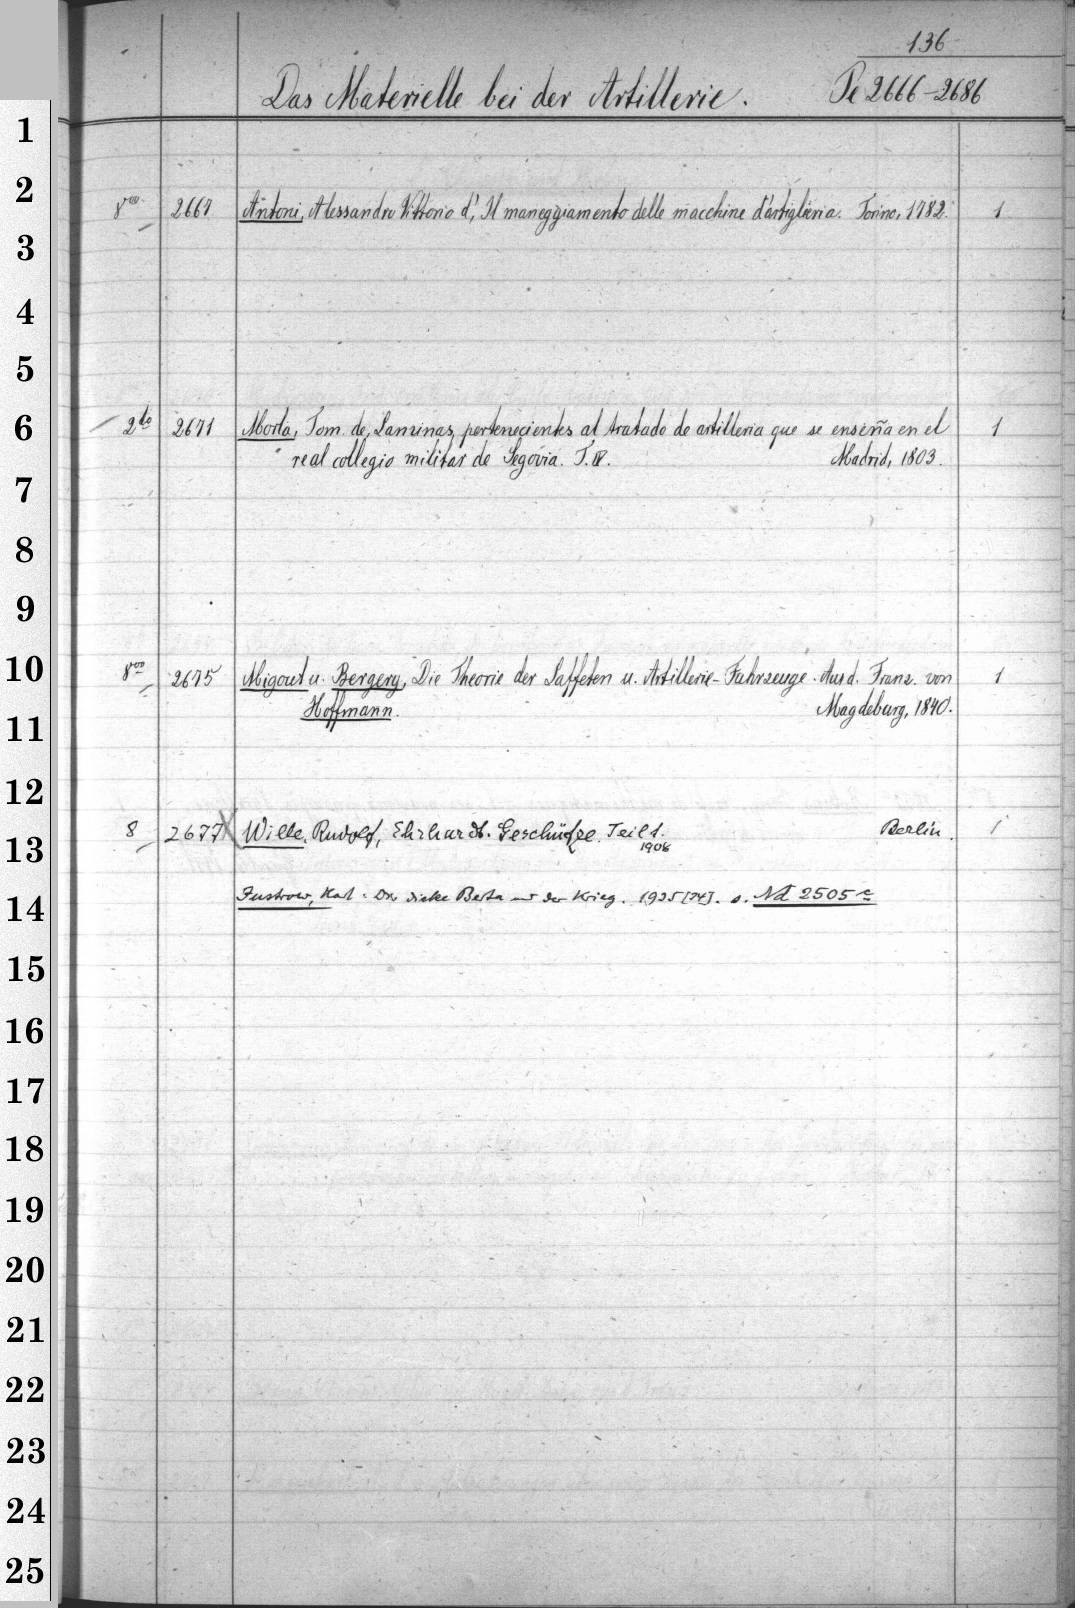 136
Das Materielle bei der Artillerie. Pe 2666-2686
1
2
8vo. 2667 Antoni, Alessandro Vittorio d', Il maneggiamento delle macchine d'artiglieria. Torino, 1782. 1
3
4
5
6 2do 2671 Morla, Tom. de, Laminas pertenecientes al tratado de artilleria que se enseña en el 1
real collegio militar de Segovia. T. IV. Madrid, 1803.
7
8
9
10 8vo 2675 Migout u. Bergery, Die Theorie der Laffeten u. Artillerie-Fahrzeuge. Aus d. Franz. von 1
Hoffmann. Magdeburg, 1840.
11
12
8 2677 X Wille, Rudolf, Ehrhardt-Geschütze. Teil 1. Berlin. 1
1908
13
14 Justrow, Karl: Die dicke Berta und der Krieg. 1935 [34]. s. Nd 2505 c
15
16
17
18
19
20
21
22
23
24
25